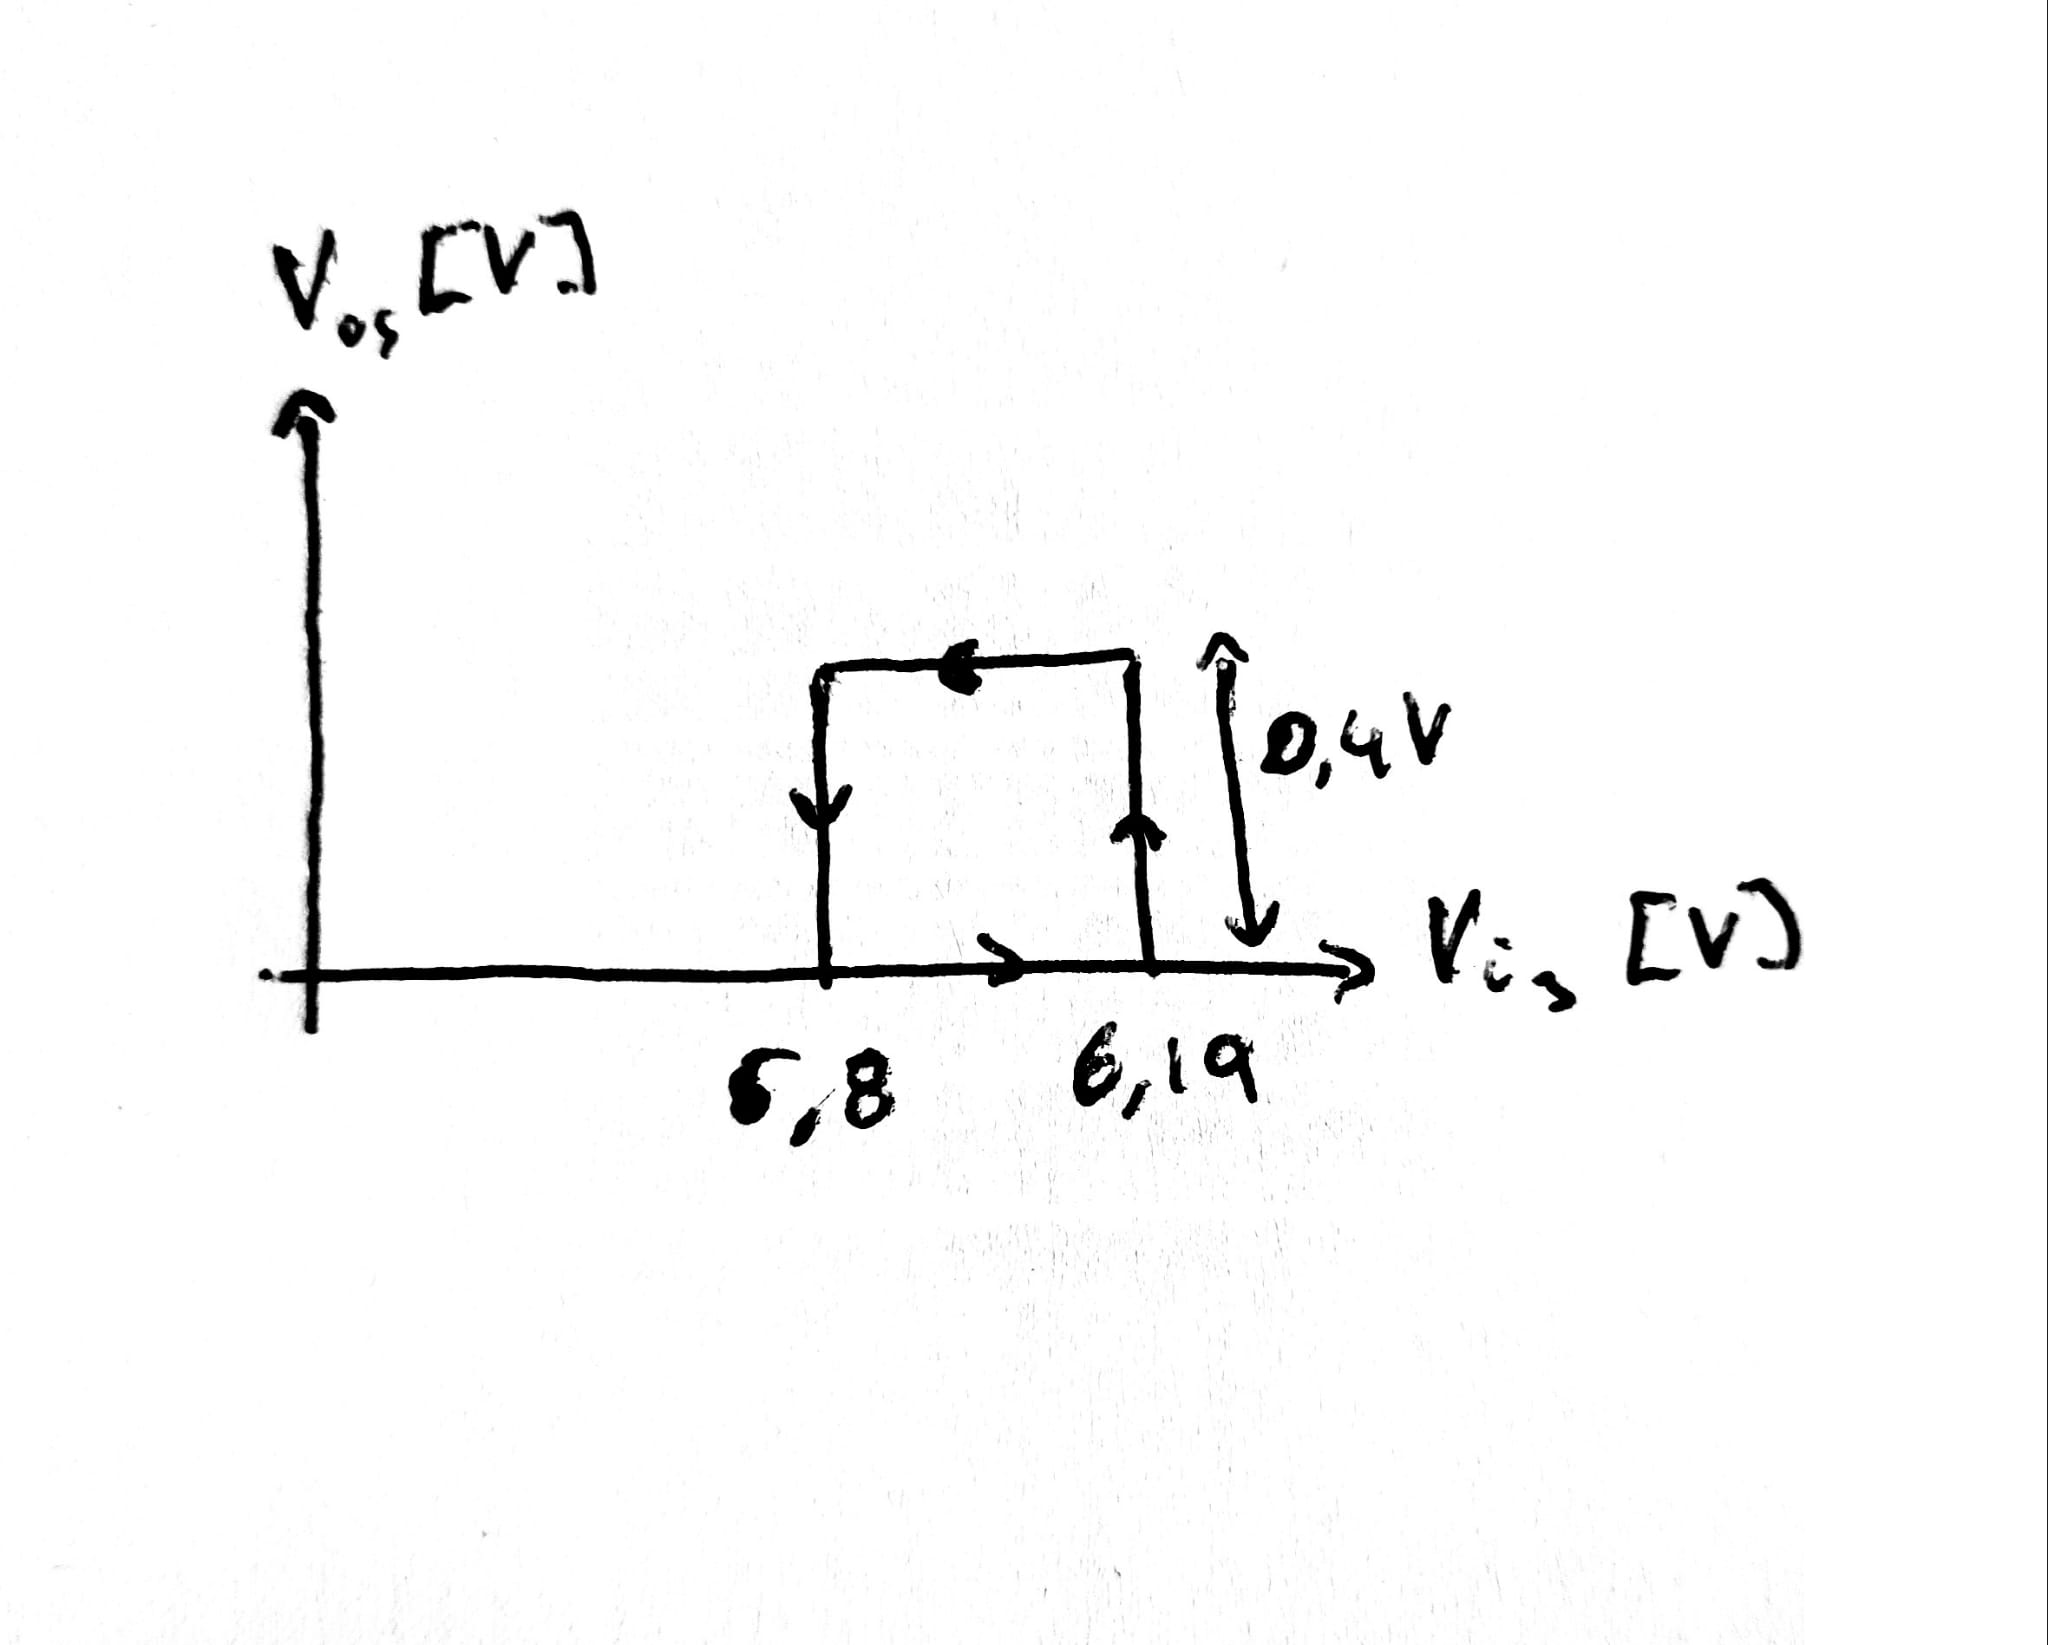 Vos [V]
0,4V
Vis [V]
5,8
6,19